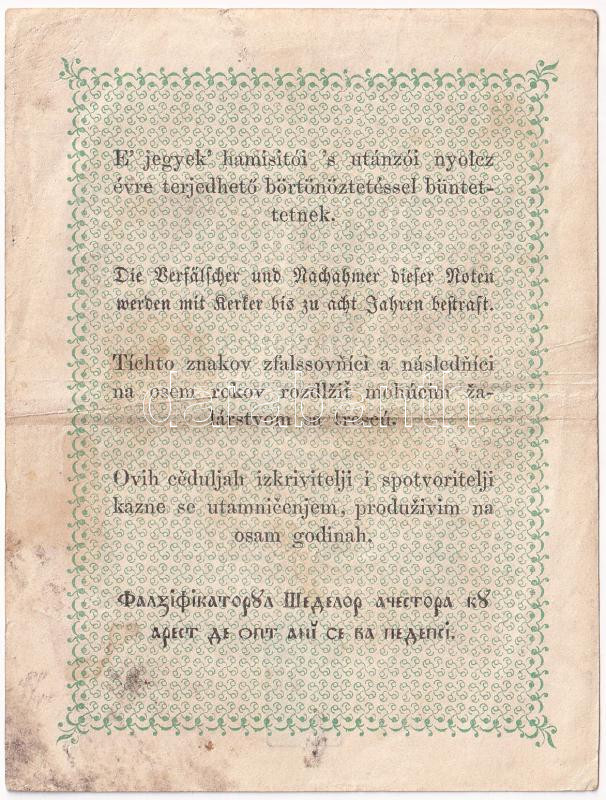 E' jegyek' hamisitói 's utánzói nyolcz
évre terjedhető börtönöztetéssel büntet-
tetnek.
Die Verfälscher und Nachahmer dieser Noten
werden mit Kerker bis zu acht Jahren bestraft.
Tíchto znakov zfalssovňíci a následňíci
na osem rokov rozdlžiť mohúcim ža-
lárstvom sa trescú.
Ovih cěduljah izkrivitelji i spotvoritelji
kazne se utamničenjem, produživim na
osam godinah.
Фалꙁіфікаторꙋл Шеделор ачестора кꙋ
арест де опт анї се ва педепсі.
darabanth